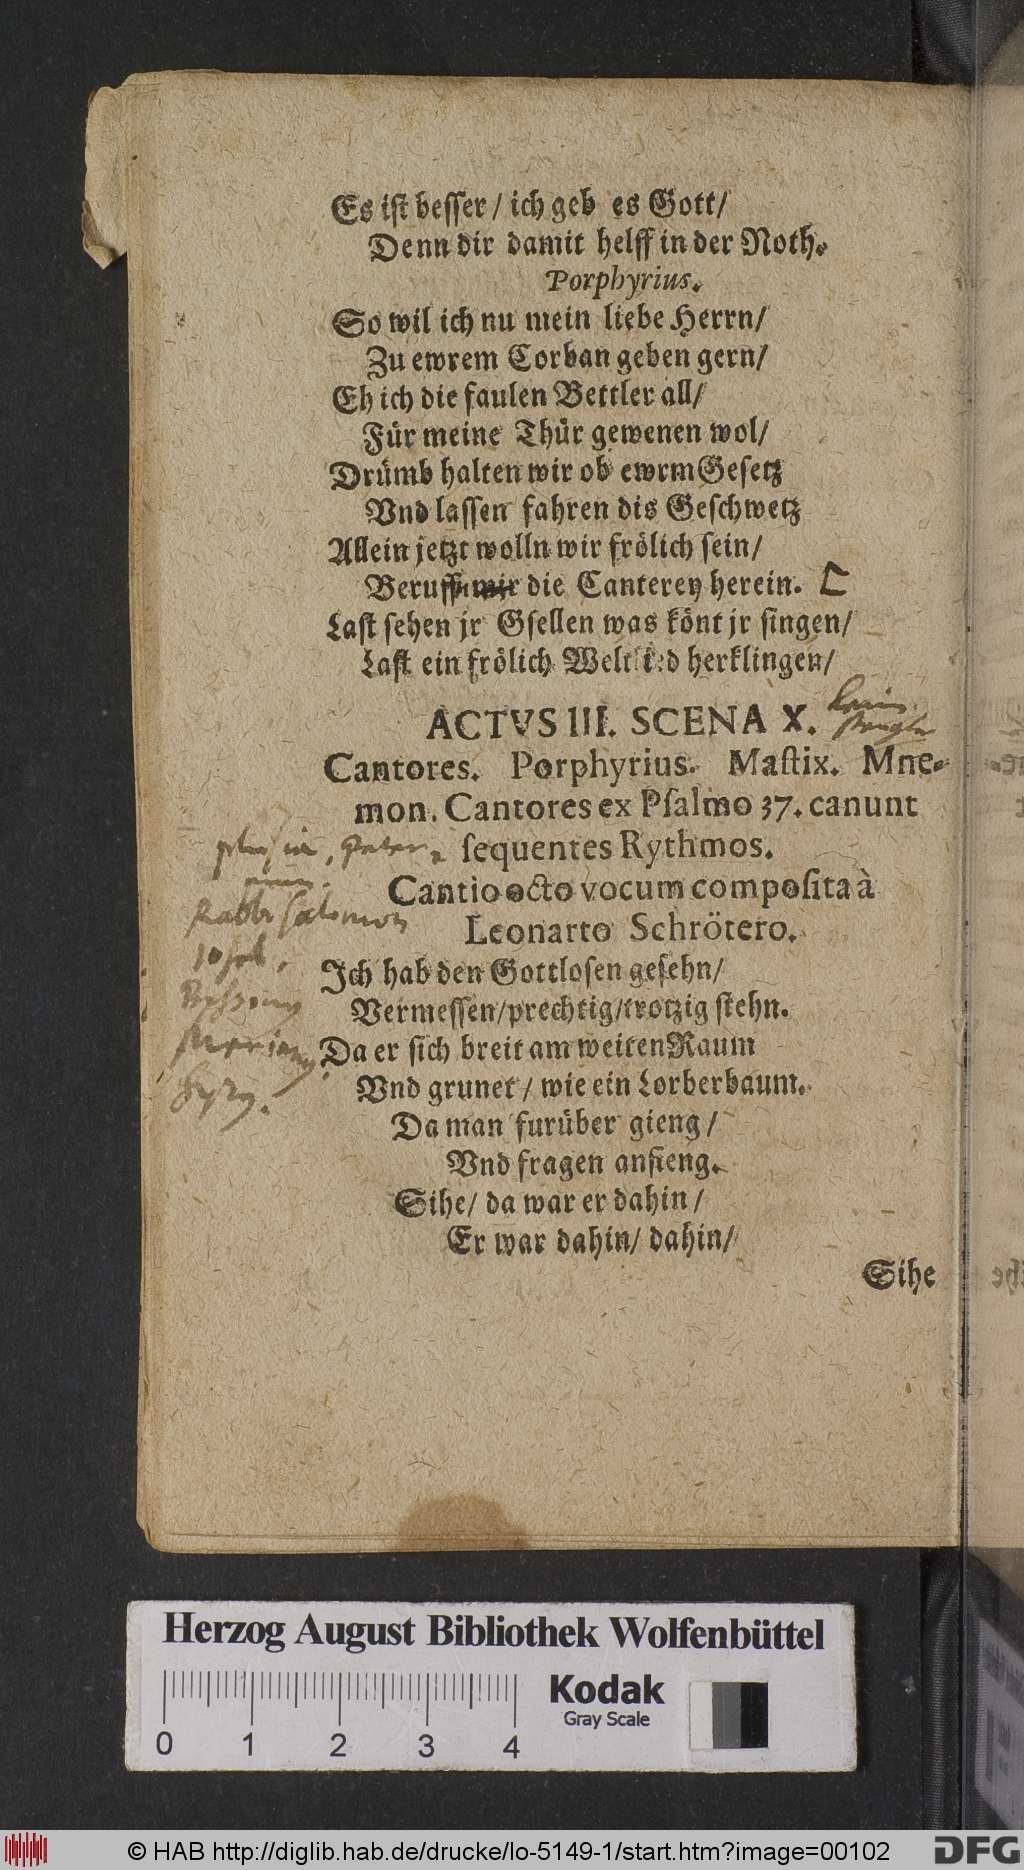 Es ist besser / ich geb es Gott /
Denn dir damit helff in der Noth.
Porphyrius.
So wil ich nu mein liebe Herrn /
Zu ewrem Corban geben gern /
Eh ich die faulen Bettler all /
Für meine Thür gewenen wol /
Drümb halten wir ob ewrm Gesetz
Vnd lassen fahren dis Geschwetz
Allein jetzt wolln wir frölich sein /
Beruff die Canterey herein.
Last sehen jr Gsellen was könt jr singen /
Last ein frölich Weltlied herklingen /
ACTVS III. SCENA X.
Cantores. Porphyrius. Mastix. Mne-
mon. Cantores ex Psalmo 37. canunt
sequentes Rythmos.
Cantio octo vocum composita à
Leonarto Schrötero.
Rabbi Salomon
Ich hab den Gottlosen gesehn /
Vermessen / prechtig / trotzig stehn.
Da er sich breit am weiten Raum
Vnd grunet / wie ein Lorberbaum.
Da man furüber gieng /
Vnd fragen ansieng.
Sihe / da war er dahin /
Er war dahin / dahin /
Sihe
Herzog August Bibliothek Wolfenbüttel
Kodak
Gray Scale
0 1 2 3 4
© HAB http://diglib.hab.de/drucke/lo-5149-1/start.htm?image=00102
DFG